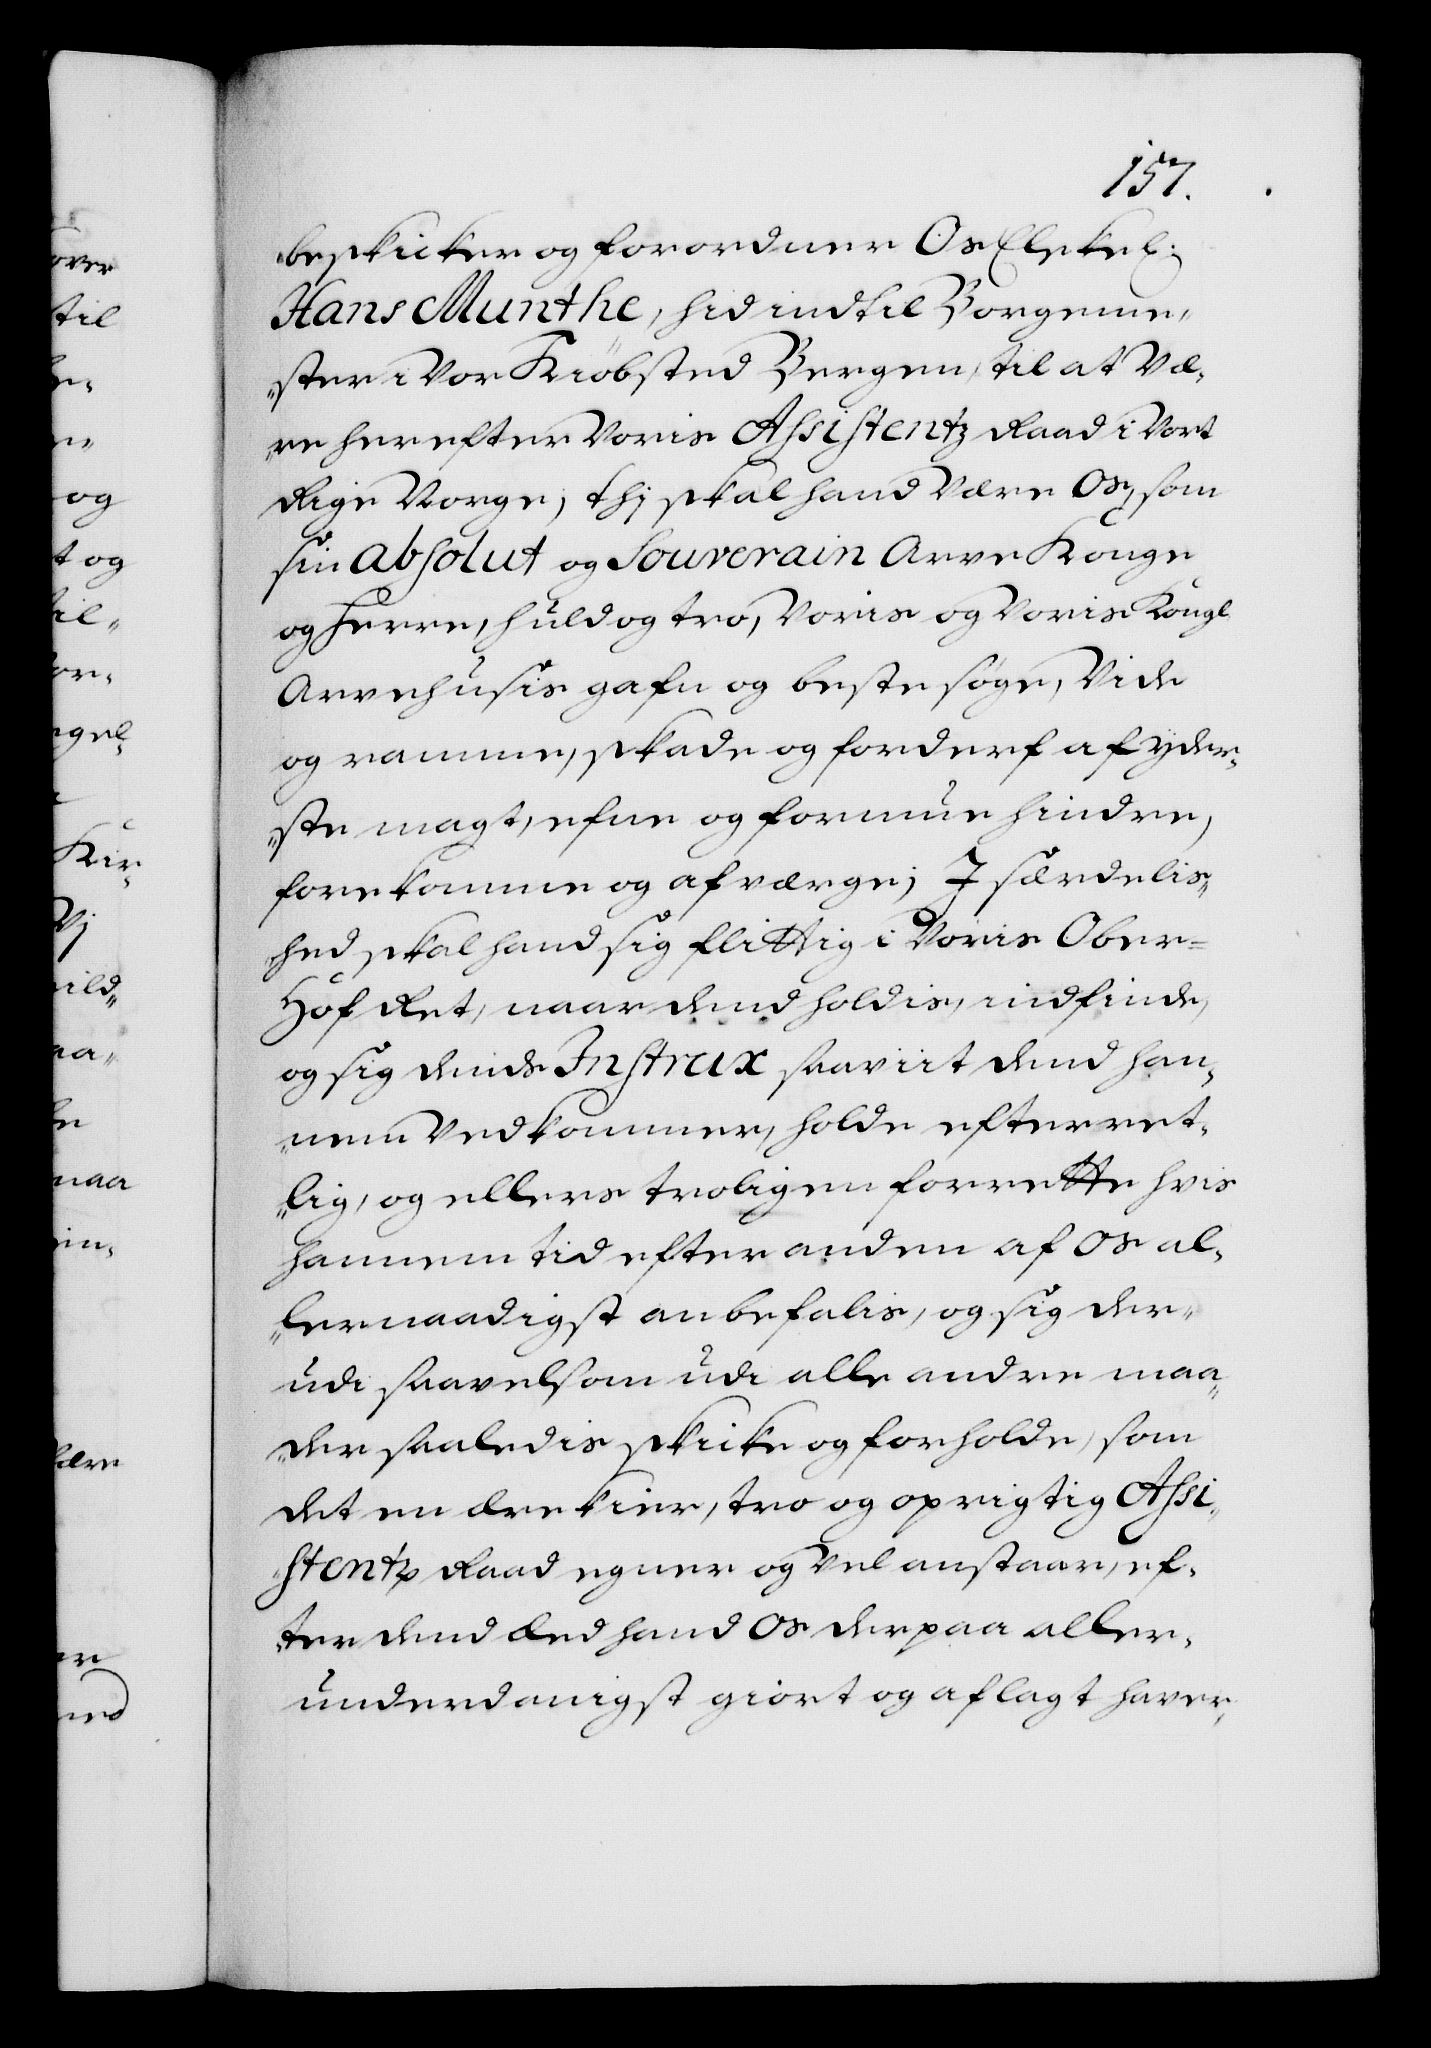 157.
beskicker og forordner Os Elskel:
Hans Munthe, hid indtil Borgeme„
„ster i Vor Kiöbsted Bergen, til at Væ„
„re herefter Voris Assistentz Raad i Vort
Rige Norge; thj skal hand Være Os, som
sin absolut og Souverain Arve Konge
og Herre, huld og tro, Voris og Voris Kongl
Arvehusis gafn og beste søge, Vide
og ramme, skade og forderf af yder„
„ste magt, efne og formue hindre,
forekomme og afværge; J særdelis„
„hed skal hand sig flittig i Voris Ober=
Hof Ret, naar dend holdis, indfinde,
og sig dends Instrux saaviit dend han„
„nem Vedkommer, holde efterret„
„lig, og ellers troligen forrette hvis
hannem tid efter anden af Os al„
„lernaadigst anbefalis, og sig der„
udi saavelsom udi alle andre maa„
„der saaledis skicke og forholde, som
det en ærekier, tro og oprigtig Assi„
„stentz Raad egner og Vel anstaar, ef„
„ter dend Eed hand Os derpaa aller„
underdanigst giort og aflagt haver,
over
til
og
t og
til„
for„
Kir„
Vj
naa
ære